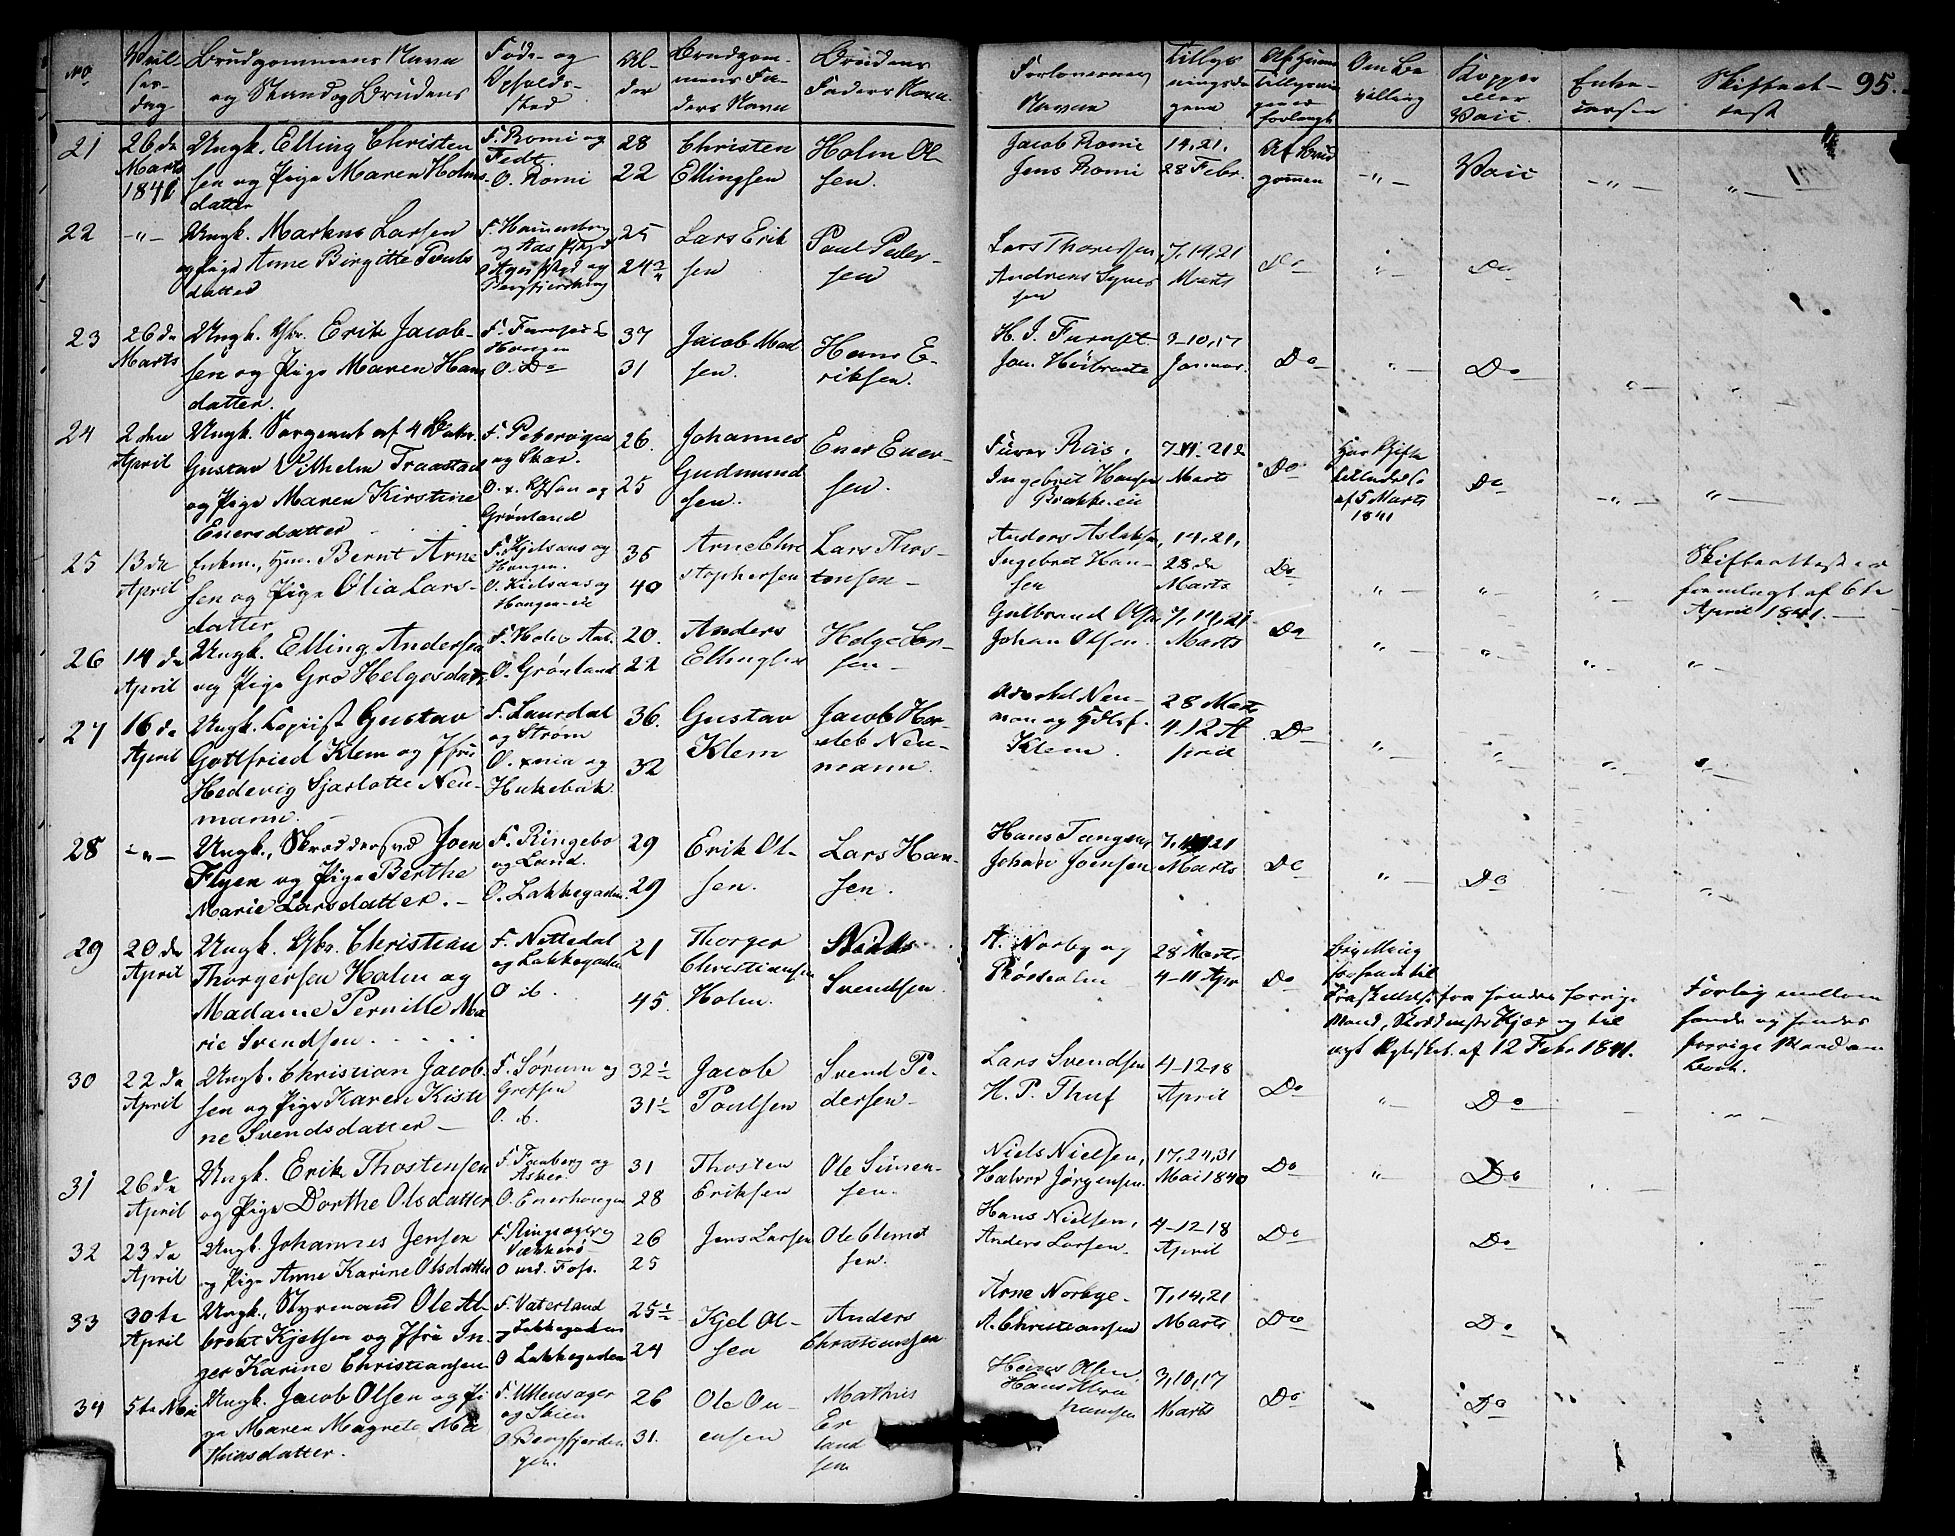 No
Viel-
ses-
dag
Brudgommens Navn
og Stand og Brudens
Føde- og
Opholds-
sted
Al-
der
Brudgom-
mens Fa-
ders Navn
Brudens
Faders Navn
Forlovernes
Navne
Tillys-
ningsda-
gene
Af hvem
Tillysnin-
gen er
forlangt
Om Be-
villing
Kopper
eller
Vacc.
Enke-
Skifteat-
test
95.
21
26de
Marts
1841
Ungk. Elling Christen
sen og Pige Maren Holms
datter
F. Romi og
O. Romi
28
22
Christen
Ellingsen
Holm Ol-
sen.
Jacob Romi
Jens Romi
14, 21,
28 Febr.
Af Brud
gommen
-"-
Vacc
-"-
"-
22
-"-
Ungk. Markus Larsen
og Pige Anne Birgitte Pouls
datter
og Aas
25
24
Lars Erik
sen
Paul Peder-
sen
Lars
Andreas
sen
7, 14, 21
Marts
Do
"-
Do
23
26de
Marts
Ungk. Gbr. Erik Jacob-
sen og Pige Maren Hans
datter.
O. Do
37
31
Jacob Mad
sen.
Hans E-
riksen.
3-10, 17
Januar.
Do
"-
Do
"-
"-
24
2den
April
Ungk. Sergeant af 4
Gustav Vilhelm Traastad
og Pige Maren Kirstine
Enersdatter
F. Pebervigen
og Skar.
Grønland
26.
25
Johannes
Gudmund
sen.
Ener Ener-
sen.
Ingebret Hansen
Brække.eie
7-14-21de
Marts
Do
af 5 Marts
1841
Do
-"-
"-
25
13de
April
Enkem., Hm. Bernt Arne
sen og Pige Olia Lars-
datter
F. Kjelsaas og
O. Kielsaas og
35
40
Arne Chri
stophersen
Lars Thors-
tensen-
Anders Aslaksen,
Ingebret Han-
sen
14, 21,
28de
Marts
Do
"-
"-
"-
Skifteattest er
fremlagt af 6te
April 1841.-
26
14de
April
Ungk. Elling Andersen
og Pige Gro Helgesdatt.
O. Grønland
20.
22
Anders
Helge Lar-
sen-
Gulbrand Olsen
Johan Olsen.
7, 14, 21
Marts
Do
"-
"-
"-
"-
27
16de
April
Ungk. Kopiist Gustav
Gottfried Klem og Jfru
Hedevig Sjarlotte Neu-
mann.-
F. Laurdal
og Strøm
36.
32
Gustav
Klem
Jacob Her-
sleb Neu-
mann.
Neu-
man og
Klem
28 Marts
4-12 A
pril
Do
"-
"-
"-
"-
28
-"-
Ungk., Skræddersvd Joen
Flyen og Pige Berthe
Marie Larsdatter.-
F. Ringebo
og Land.
O. Lakkegaden.
29
29
Erik Ol-
sen.
Lars Han-
sen.
Hans Tangen,
Johan Joensen
7, 14, 21
Marts
Do
"-
Do
"-
29
20de
April
Ungk. Gbr. Christian
Thorgersen Holm og
Madame Pernille Ma
rie Svendsen.....
F. Nittedal
og Lakkegaden
O ib.
21
45.
Thorger
Christiansen
Holm.
Niels
Svendsen.
A. Norby og
28 Marts
4-11 Apr
Do
Bevilling
for hende til
fra hendes forrige
Mand, og til
nyt Ægteskab. af 12 Febr 1841.
Forlig mellem
hende og hendes
forrige Mand om
Boet.
30
22de
April
Ungk. Christian Jacob
sen og Pige Karen Kisti
ne Svendsdatter-
F. Sørum og
Grefsen
O. ib.
32½
31½
Jacob
Poulsen
Svend Pe-
dersen-
Lars Svendsen
H. P. Thuf
4-12-18
April
Do
"-
Do
"-
31
26de
April
Ungk. Erik Thostensen
og Pige Dorthe Olsdatter
Asker
O. Enerhaugen
31
28
Thosten
Eriksen
Ole Simen-
sen.
Niels Nielsen,
Halvor Jørgensen.
17, 24, 31
Mai 1840
Do
"-
Do
32
23de
April
Ungk. Johannes Jensen
og Pige Anne Karine Olsdatter
F. Ringsager og
Vækkerø
O vd. Fos.
26
25
Jens Larsen
Ole Clemet
sen.
Hans Nielsen,
Anders Larsen.
4-12-18
April
Do
Do
33
30te
April
Ungk., Styrmand Ole Al-
brekt Kjelsen og Jfru In-
ger Karine Christiansen
F. Vaterland
og Lakkegaden
O Lakkegaden
25½
24
Kjel Ol-
sen
Anders
Christiansen
Arne Norbye-
A. Christiansen
7, 14, 21
Marts
Do
Do
34
5te Mai
Ungk. Jacob Olsen og Pi
ge Maren Magrete Ma
thiasdatter.
F. Ullensager
og Skien
26
31.
Ole Ou-
ensen
Mathis
Er
land
sen
Hans Olsen.
3, 10, 17
Marts
Do
Do